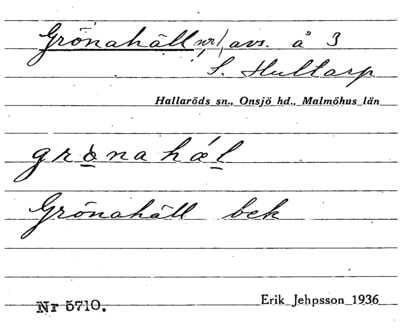 Grönahäll nr 1, avs. å 3
S. Hultarp
Hallaröds sn., Onsjö hd., Malmöhus län
grònahǽl
Grönahäll bek
Nr 5710.
Erik Jehpsson 1936